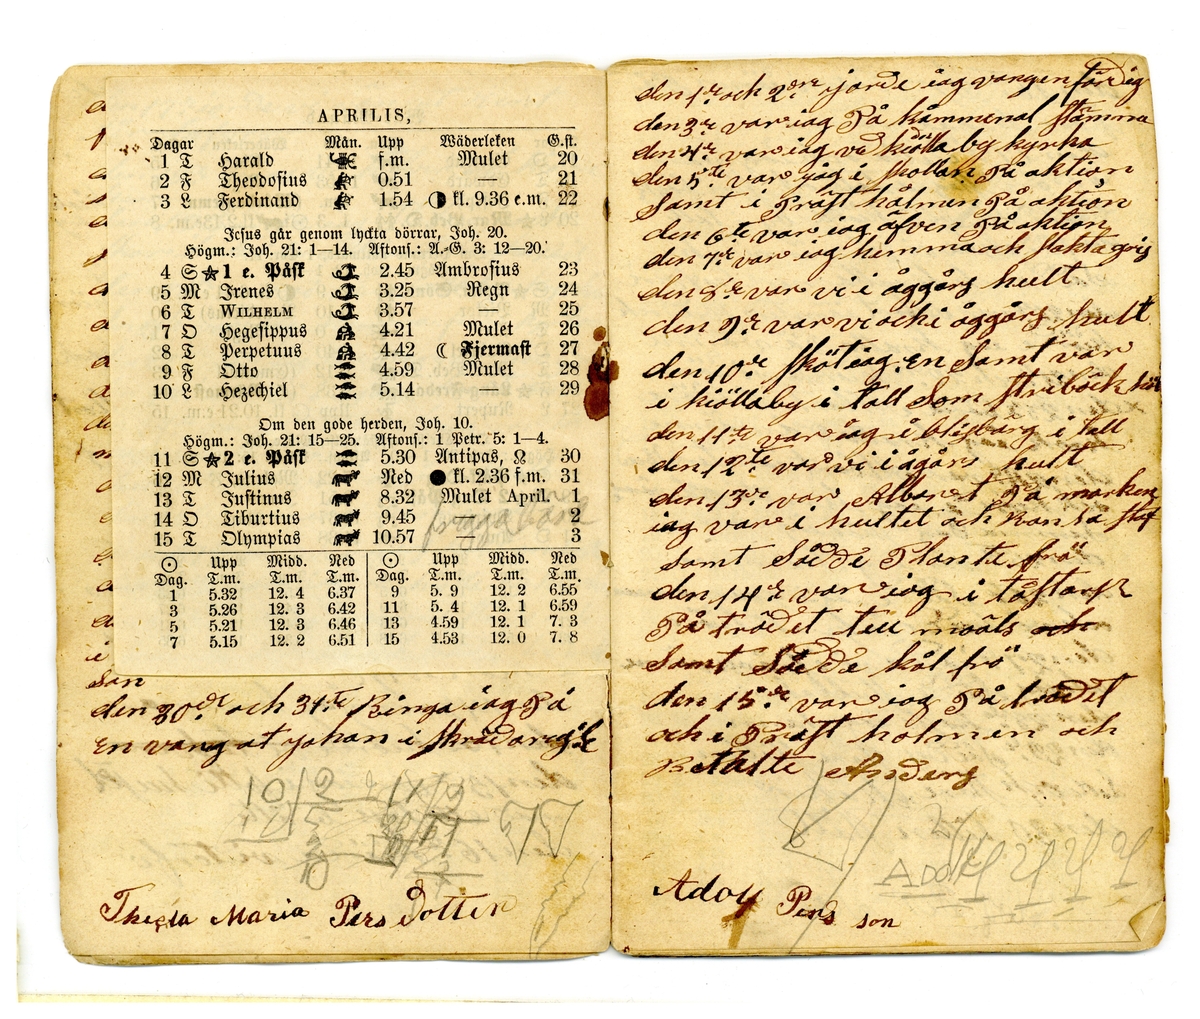 APRILIS,
Dagar Mån. Upp Wäderleken G.st.
1 T Harald f.m. Mulet 20
2 F Theodosius 0.51 — 21
3 L Ferdinand 1.54 kl. 9.36 e.m. 22
Jesus går genom lyckta dörrar, Joh. 20.
Högm.: Joh. 21: 1—14. Aftons.: A.-G. 3: 12—20.
4 S 1 e. Påsk 2.45 Ambrosius 23
5 M Irenes 3.25 Regn 24
6 T WILHELM 3.57 — 25
7 O Hegesippus 4.21 Mulet 26
8 T Perpetuus 4.42 ☾ Fjermast 27
9 F Otto 4.59 Mulet 28
10 L Hezechiel 5.14 — 29
Om den gode herden, Joh. 10.
Högm.: Joh. 21: 15—25. Aftons.: 1 Petr. 5: 1—4.
11 S 2 e. Påsk 5.30 Antipas, ☊ 30
12 M Julius Ned ● kl. 2.36 f.m. 31
13 T Justinus 8.32 Mulet April. 1
14 O Tiburtius 9.45 — 2
15 T Olympias 10.57 — 3
☉ Upp Midd. Ned ☉ Upp Midd. Ned
Dag. T.m. T.m. T.m. Dag. T.m. T.m. T.m.
1 5.32 12. 4 6.37 9 5. 9 12. 2 6.55
3 5.26 12. 3 6.42 11 5. 4 12. 1 6.59
5 5.21 12. 3 6.46 13 4.59 12. 1 7. 3
7 5.15 12. 2 6.51 15 4.53 12. 0 7. 8
son
den 30de och 31te Ringa iag På
En vang at Johan i
Thecla Maria Pers Dotter
den 1re och 2dre jorde iag vangen färdig
den 3re var iag På kåmmenal stämma
den 4re var iag ved kiölla by kyrka
den 5te var jag i Mollan På aktion
Samt i Präst holmen På aktion
den 6te var iag äfven På aktion
den 7re var iag hemma och slakta gris
den 8de var vi i åggårs hult
den 9re var vi och i åggårs hult
den 10re sköt iag En Samt var
i kiöllaby i tall Som
den 11te var iag i blisbärg i tall
den 12te var vi i ågårs hult
den 13re var Albert På marken
iag var i hultet och
samt Såede Plante frö
den 14re var iag i tåstarp
På trädet till moäls och
samt Såede kål frö
den 15re var iag På trädet
och i Präst holmen och
Betalte Anders
Adolf Pers son